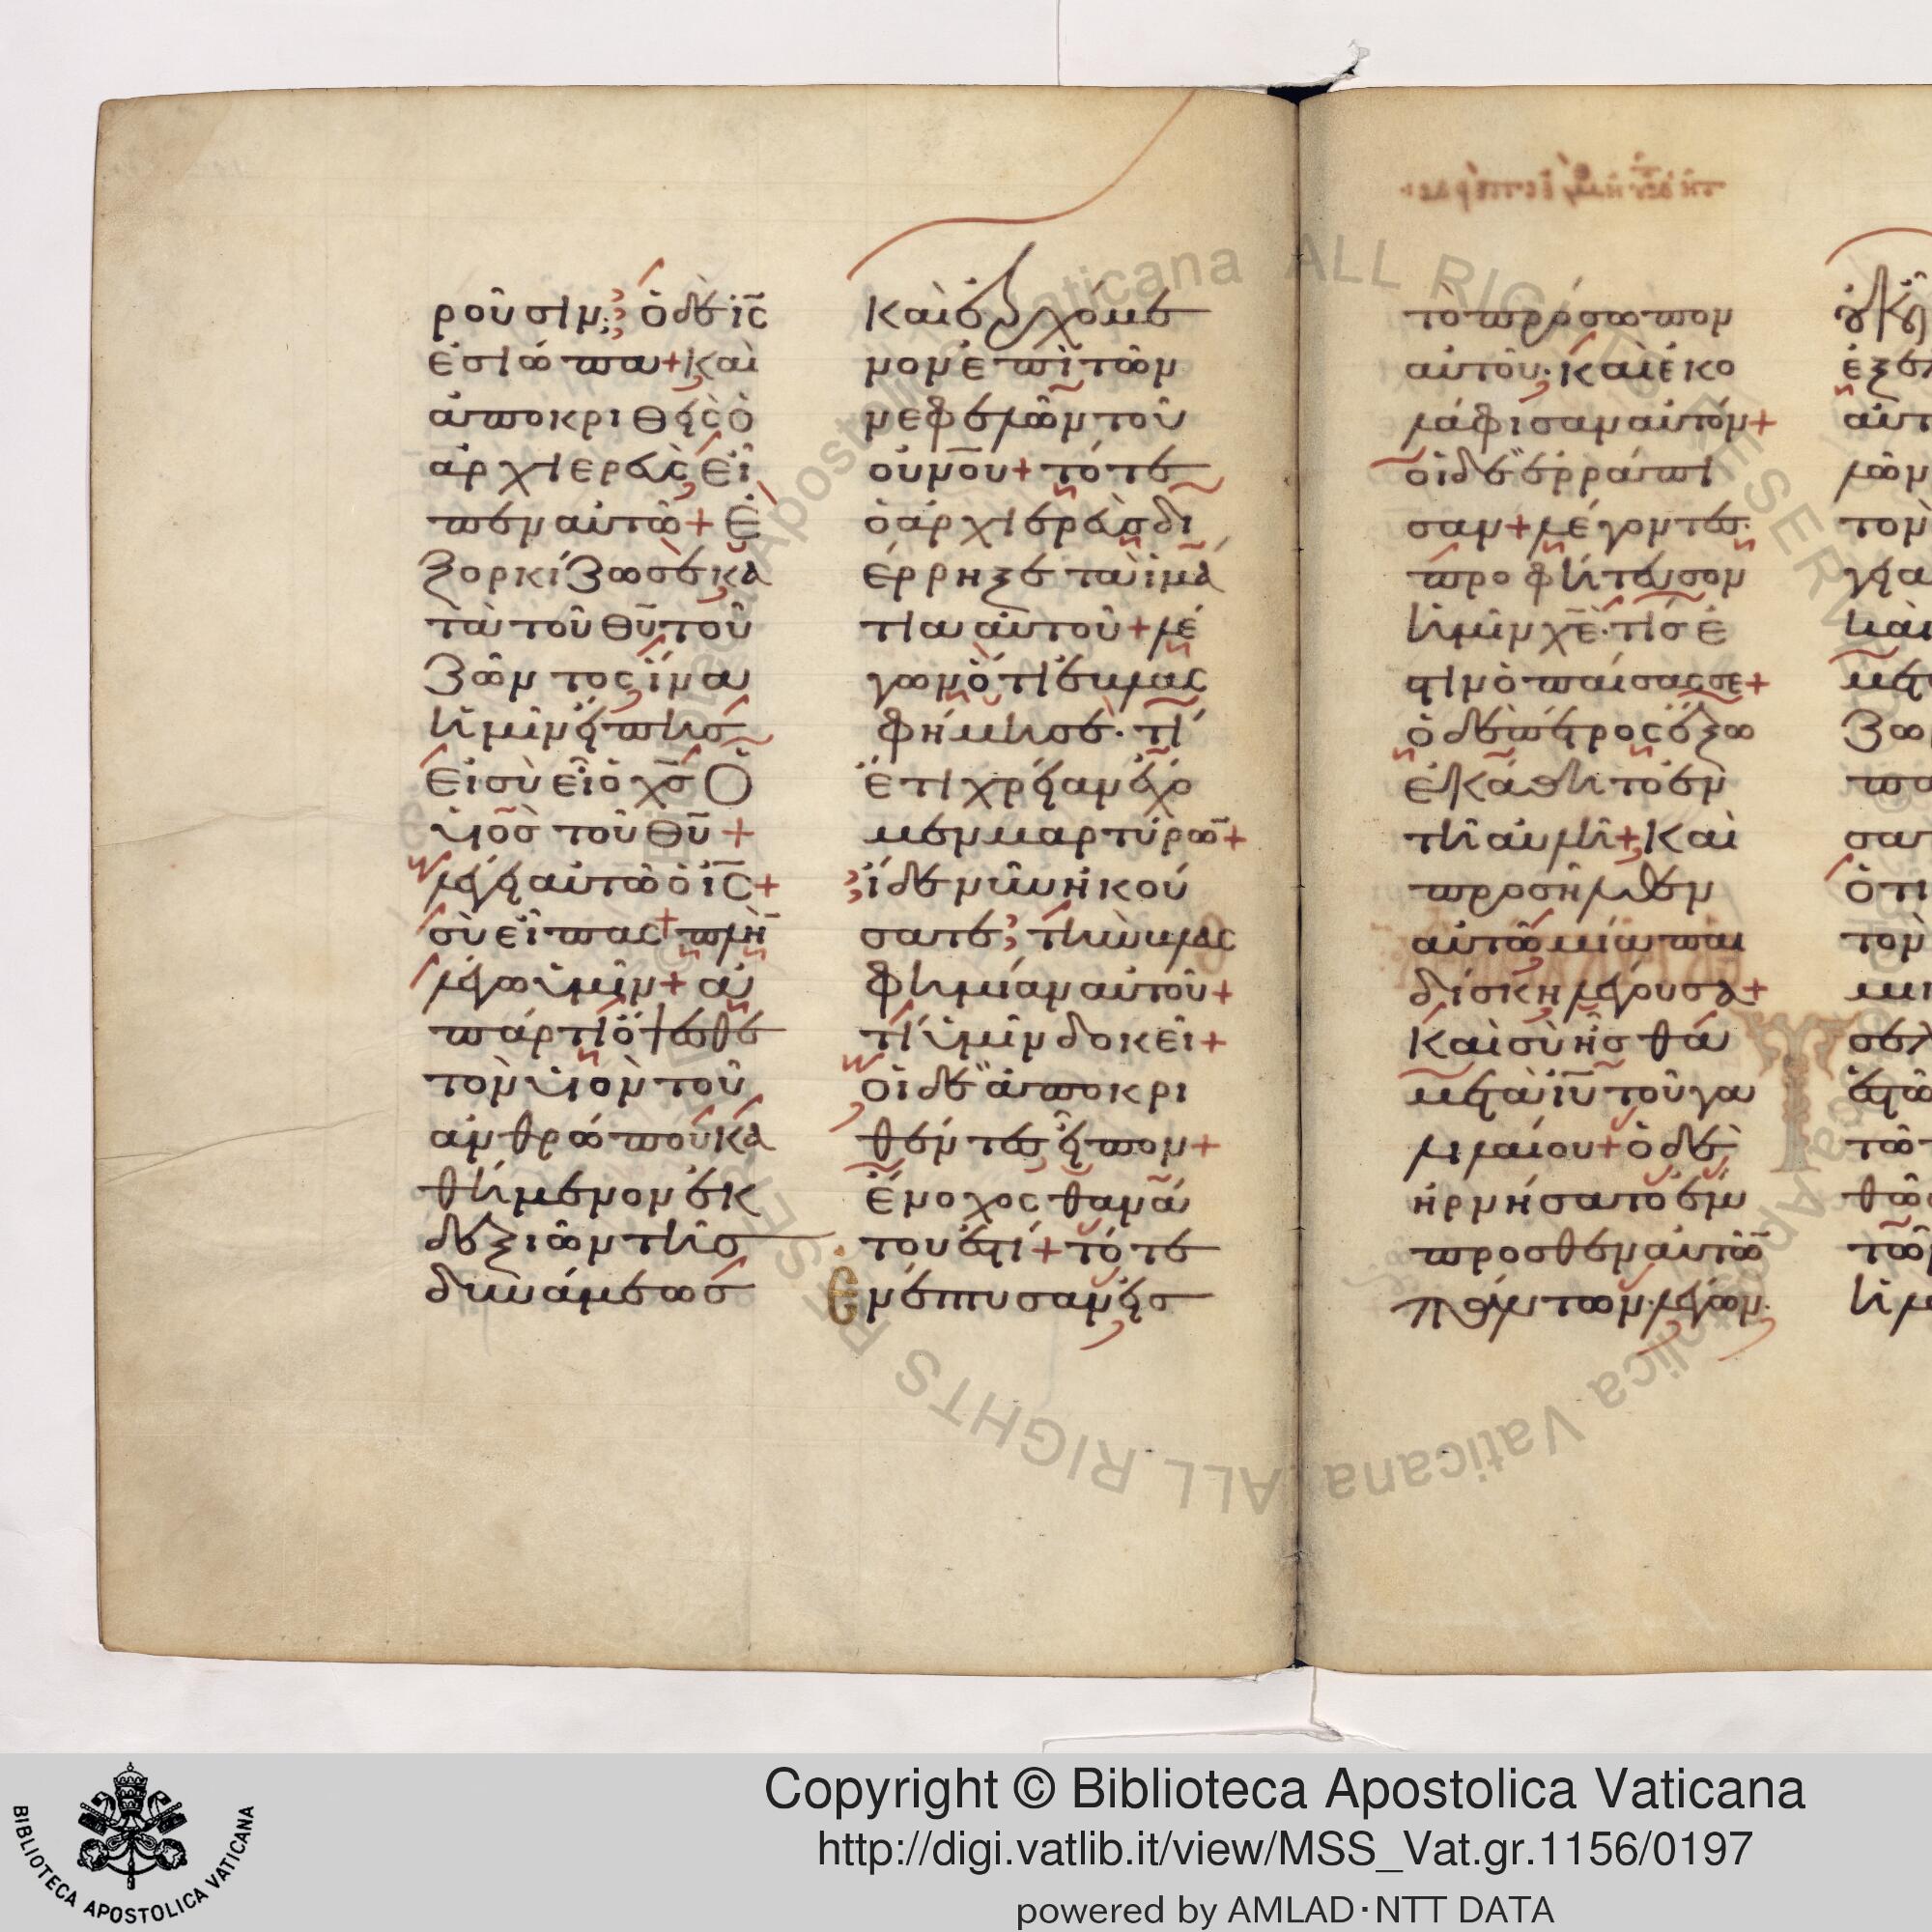 ροῦσιν; ὁ δὲ ις
ἐσιώπα + καὶ
ἀποκριθεὶς ὁ
ἀρχιερεὺς εἶ
πεν αὐτῶ + Ἐ
ξορκίζω σὲ κα
τὰ τοῦ θυ τοῦ
ζῶντος ἵνα
ἡμῖν εἴπης
εἰ σὺ εἶ ὁ χς ὁ
υἱὸς τοῦ θυ +
λέγει αὐτῶ ὁ ις +
σὺ εἶπας + πλὴν
λέγω ὑμῖν + ἀ
πάρτι ὄψεσθε
τὸν υἱὸν τοῦ
ἀνθρώπου κα
θήμενον ἐκ
δεξιῶν τῆς
δυνάμεως
καὶ ἐρχόμε
νον ἐπὶ τῶν
νεφελῶν τοῦ
οὐνου + τότε
ὁ ἀρχιερεὺς δι
έρρηξε τὰ ἱμά
τια αὐτοῦ + λέ
γων ὅτι ἐβλασ
φήμησε· τί
ἔτι χρείαν ἔχο
μεν μαρτύρων +
ἴδε νῦν ἠκού
σατε; τὴν βλασ
φημίαν αὐτοῦ +
τί ὑμῖν δοκεῖ +
οἱ δὲ ἀποκρι
θέντες εἶπον +
ἔνοχος θανά
του ἐστί + τότε
ἐνέπτυσαν εἰς
τὸ πρόσωπον
αὐτοῦ· καὶ ἐκο
λάφισαν αὐτόν +
οἱ δὲ ἐρράπι
σαν + λέγοντες·
προφήτευσον
ἡμῖν χε· τίς ἐ
στιν ὁ παίσας σε +
ὁ δὲ πέτρος ἔξω
ἐκάθητο ἐν
τῆ αὐλῆ + καὶ
προσῆλθεν
αὐτῶ μία παι
δίσκη λέγουσα +
καὶ σὺ ἦσθα
μετὰ ιυ τοῦ γα
λιλαίου + ὁ δὲ
ἠρνήσατο ἔμ
προσθεν αὐτῶν
πάντων· λέγων·
Copyright © Biblioteca Apostolica Vaticana
http://digi.vatlib.it/view/MSS_Vat.gr.1156/0197
powered by AMLAD·NTT DATA
BIBLIOTECA APOSTOLICA VATICANA